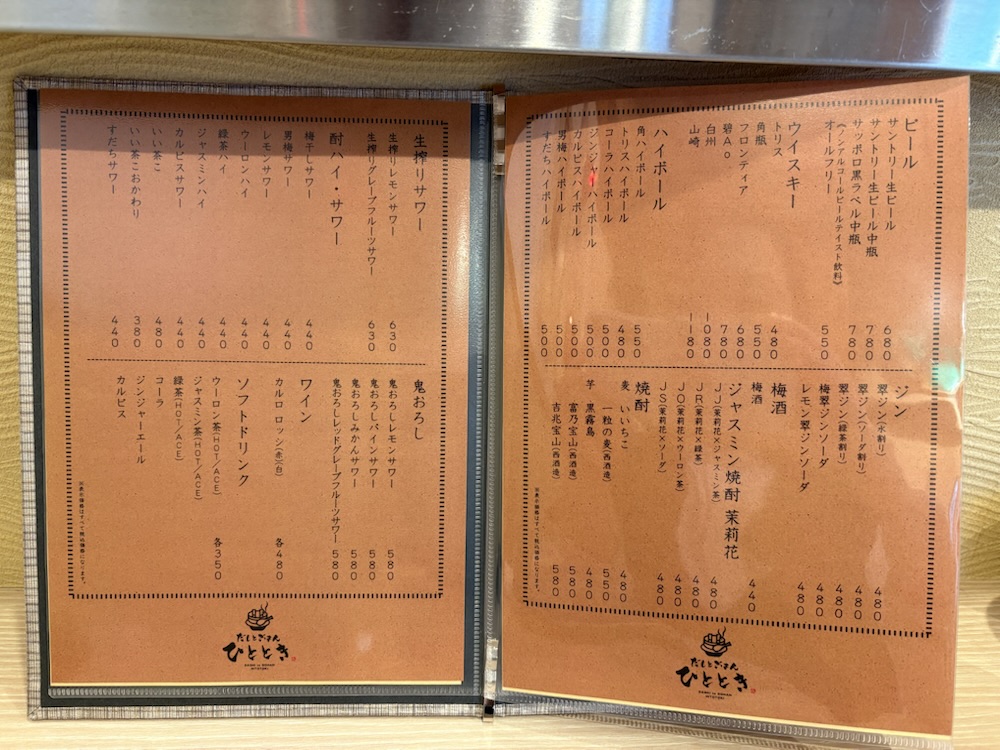 ビール
サントリー生ビール 680
サントリー生ビール中瓶 780
サッポロ黒ラベル中瓶 780
(ノンアルコールビールテイスト飲料)
オールフリー 550
ウイスキー
トリス 480
角瓶 550
フロンティア 680
碧Ao 780
白州 1080
山崎 1180
ハイボール
角ハイボール 550
トリスハイボール 480
コーラハイボール 500
ジンジャーハイボール 500
カルピスハイボール 500
男梅ハイボール 500
すだちハイボール 500
ジン
翠ジン(水割り) 480
翠ジン(ソーダ割り) 480
翠ジン(緑茶割り) 480
梅翠ジンソーダ 480
レモン翠ジンソーダ 480
梅酒
梅酒 440
ジャスミン焼酎 茉莉花
JJ(茉莉花×ジャスミン茶) 480
JR(茉莉花×緑茶) 480
JO(茉莉花×ウーロン茶) 480
JS(茉莉花×ソーダ) 480
焼酎
麦 いいちこ 480
一粒の麦(西酒造) 550
芋 黒霧島 480
富乃宝山(西酒造) 580
吉兆宝山(西酒造) 580
※表示価格はすべて税込価格になります。
だしとごはん
ひととき
DASHI to GOHAN
HITOTOKI
生搾りサワー
生搾りレモンサワー 630
生搾りグレープフルーツサワー 630
酎ハイ・サワー
梅干しサワー 440
男梅サワー 440
レモンサワー 440
ウーロンハイ 440
緑茶ハイ 440
ジャスミンハイ 440
カルピスサワー 440
いい茶こ 480
いい茶こおかわり 380
すだちサワー 440
鬼おろし
鬼おろしレモンサワー 580
鬼おろしパインサワー 580
鬼おろしみかんサワー 580
鬼おろしレッドグレープフルーツサワー 580
ワイン
カルロ ロッシ(赤/白) 各480
ソフトドリンク
ウーロン茶(HOT/ACE) 各350
ジャスミン茶(HOT/ACE)
緑茶(HOT/ACE)
コーラ
ジンジャーエール
カルピス
※表示価格はすべて税込価格になります。
だしとごはん
ひととき
DASHI to GOHAN
HITOTOKI